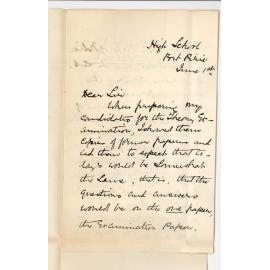 High School
Port Pirie
June 1st
Dear Sir
When preparing my
candidates for the Theory Ex-
amination, I showed them
copies of former papers and
led them to expect that to-
day's would be somewhat
the same, that is, that the
questions and answers
would be on the one paper,
the Examination Paper.